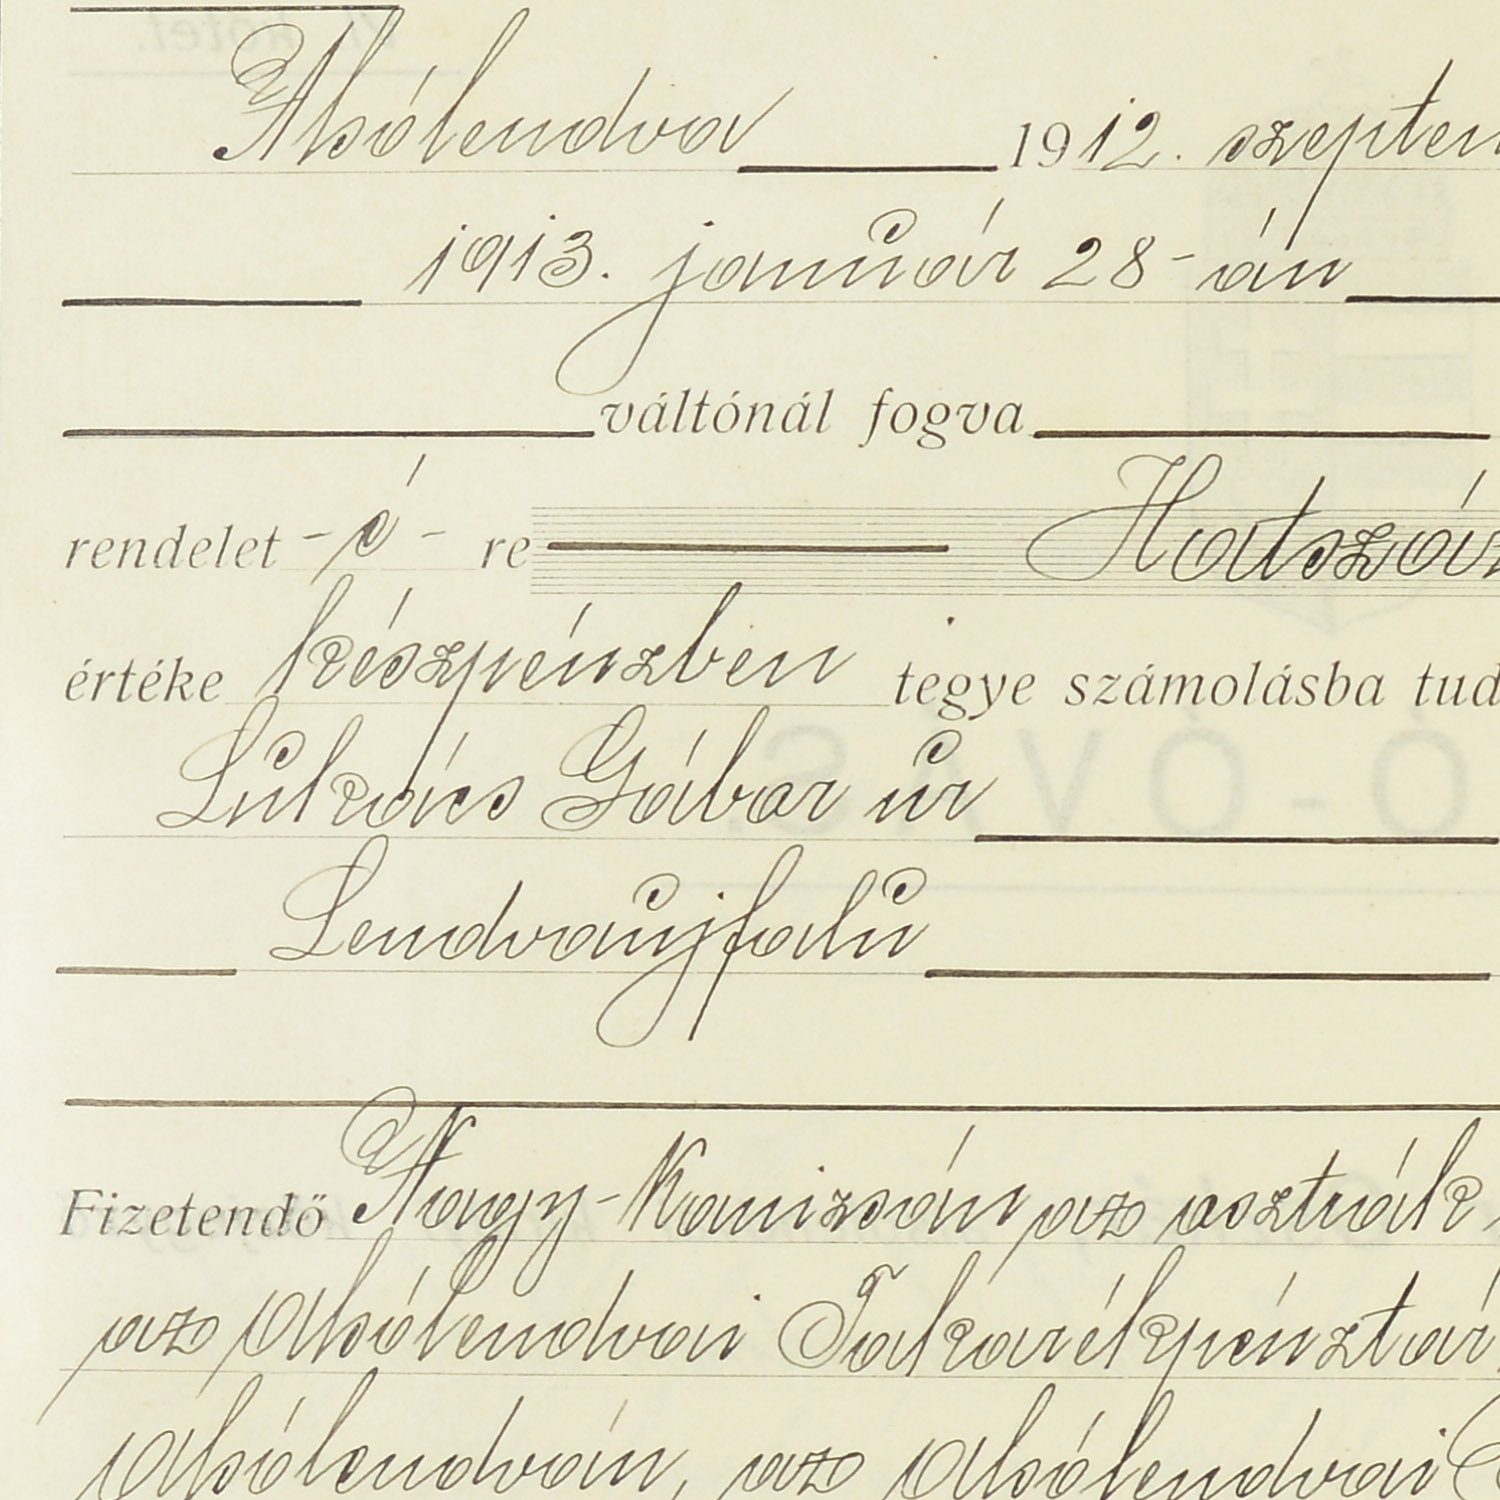 Alsólendva 1912. szeptem
1913. január 28-án
váltónál fogva
rendelet -é- re Hatszáz
értéke készpénzben tegye számolásba tud
Lukács Gábor úr
Lendvaujfalu
Fizetendő Nagy-Kanizsán az osztrák
az alsólendvai Takarékpénztár
Alsólendván, az alsólendvai